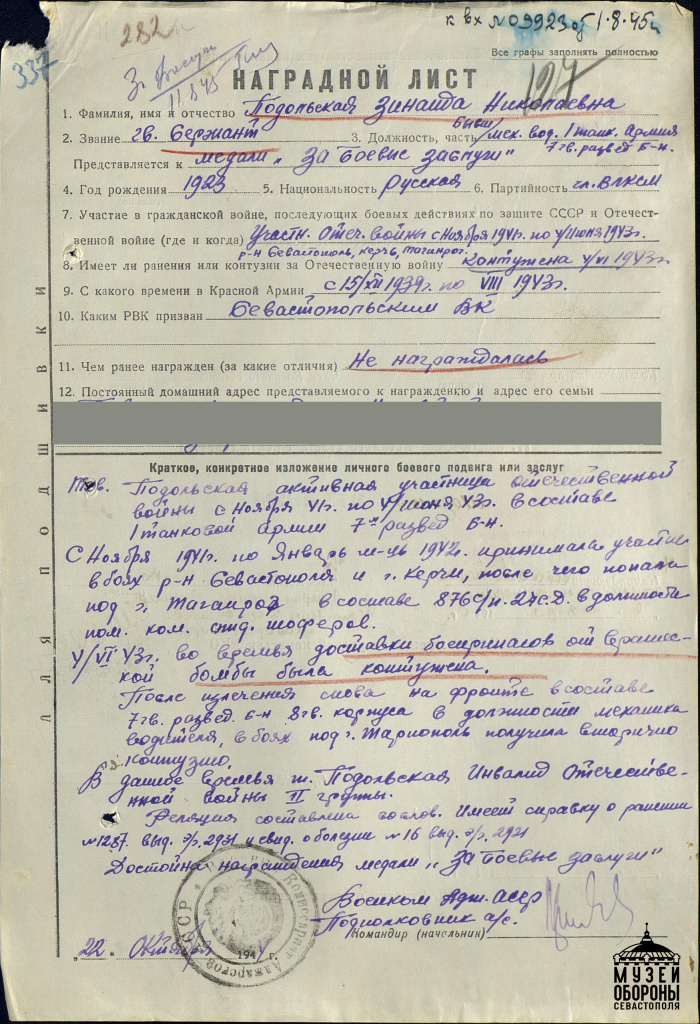 к вх № 09923 об 1.8.45г
282
337
Все графы заполнять полностью
За Боевые
11.8.45
127
НАГРАДНОЙ ЛИСТ
1. Фамилия, имя и отчество Подольская Зинаида Николаевна
2. Звание гв. Сержант 3. Должность, часть бывш/мех. вод. 1 танк. Армия
7 гв. развед Б-н.
Представляется к медали „За Боевые заслуги"
4. Год рождения 1923 5. Национальность Русская 6. Партийность чл. ВЛКСМ
7. Участие в гражданской войне, последующих боевых действиях по защите СССР и Отечест-
венной войне (где и когда) Участн. Отеч. Войны с Ноября 1941г. по 4/июня 1943г.
р-н Севастополь, Керчь, Таганрог
8. Имеет ли ранения или контузии за Отечественную войну контужена 4/VI 1943г.
9. С какого времени в Красной Армии с 15/XII 1939г. по VIII 1943г.
10. Каким РВК призван Севастопольским ВК
11. Чем ранее награжден (за какие отличия) Не награждалась
12. Постоянный домашний адрес представляемого к награждению и адрес его семьи
Краткое, конкретное изложение личного боевого подвига или заслуг
Тов. Подольская активная участница отечественной
войны с Ноября 41г. по 4/июня 43г. в составе
1 танковой армии 7й развед б-н.
С Ноября 1941г. по Январь м-ць 1942г. принимала участие
в боях р-н Севастополя и г. Керчи, после чего попала
под г. Таганрог в составе 876 с/п. 24 с.д. в должности
пом. ком. отд. шоферов.
4/VI 43г. во времья доставки боеприпасов от вражес-
кой бомбы была контужена.
После излечения снова на фронте в составе
7 гв. развед. б-н 8 гв. корпуса в должности механика
водителя, в боях под г. Мариополь получила вторично
контузию.
В данное времья т. Подольская Инвалид Отечестве-
нной войны II группы.
Реляция составлена со слов. Имеет справку о ранении
№1287. выд. э/г. 2931 и свид. о болезни №16 выд. э/г. 2921
Достойна награждения медали „За боевые заслуги"
Военком Адж. АССР
Подполковник а/с.
Командир (начальник)
„22" Октября 194 г.
ДЛЯ ПОДШИВКИ
МУЗЕЙ
ОБОРОНЫ
СЕВАСТОПОЛЯ